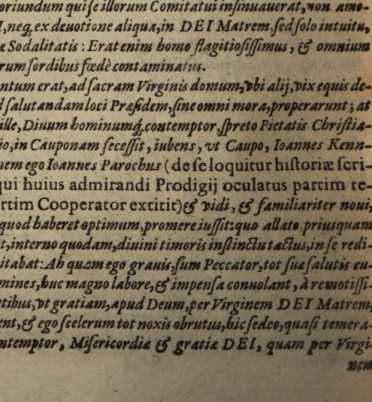 oriundum qui se illorum Comitatui insinuaverat, non amo-
I, neq, ex devotione aliqua, in DEI Matrem, sed solo intuitu,
æ Sodalitatis : Erat enim homo flagitiosissimus, & omnium
rum sordibus fœdè contaminatus.
ntum erat, ad sacram Virginis domum, vbi alij, vix equis de-
d salutandam loci Præsidem, sine omni mora, properarunt; at
ille, Divum hominumq, contemptor, spreto Pietatis Christia-
io, in Cauponam secessit, iubens, vt Caupo, Ioannes Kenn-
nem ego Ioannes Parochus ( de se loquitur historiæ scri-
qui huius admirandi Prodigij oculatus partim te-
rtim Cooperator extitit)& vidi, & familiariter novi,
quod haberet optimum, promere iussit: quo allato priusquam
t, interno quodam, divini timoris instinctu tactus, in se redi-
itabat: Ah quam ego gravis, sum Peccator, tot suæ salutis cu-
mines, huc magno labore, & impensa convolant, à remotissi-
tibus, vt gratiam, apud Deum, per Virginem DEI Matrem,
ent, & ego scelerum tot noxis obrutus, hic sedeo, quasi temera-
ntemptor, Misericordiæ & gratiæ DEI, quam per Virgi-
nem